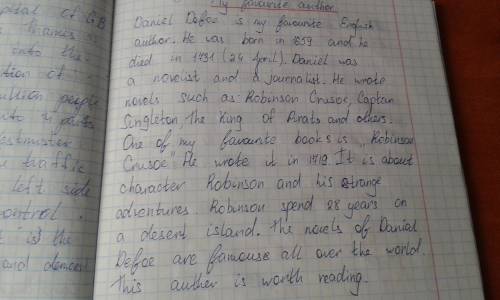 pital of GB
Thames
into the
tion of
ullion people
nto 4 parts
estmister
e traffic
left side
control.
" is the
and democst
My favourite author.
Daniel Defoe is my favourite English
author. He was born in 1659 and he
died in 1731 (24 April). Daniel was
a novelist and a journalist. He wrote
novels such as: Robinson Crusoe, Captan
Singleton The King of Pirats and others.
One of my favourite books is „Robinson
Crusoe" He wrote it in 1719. It is about
character Robinson and his strange
adventures. Robinson spend 28 years on
a desert island. The novels of Danial
Defoe are famouse all over the world.
This auther is worth reading.